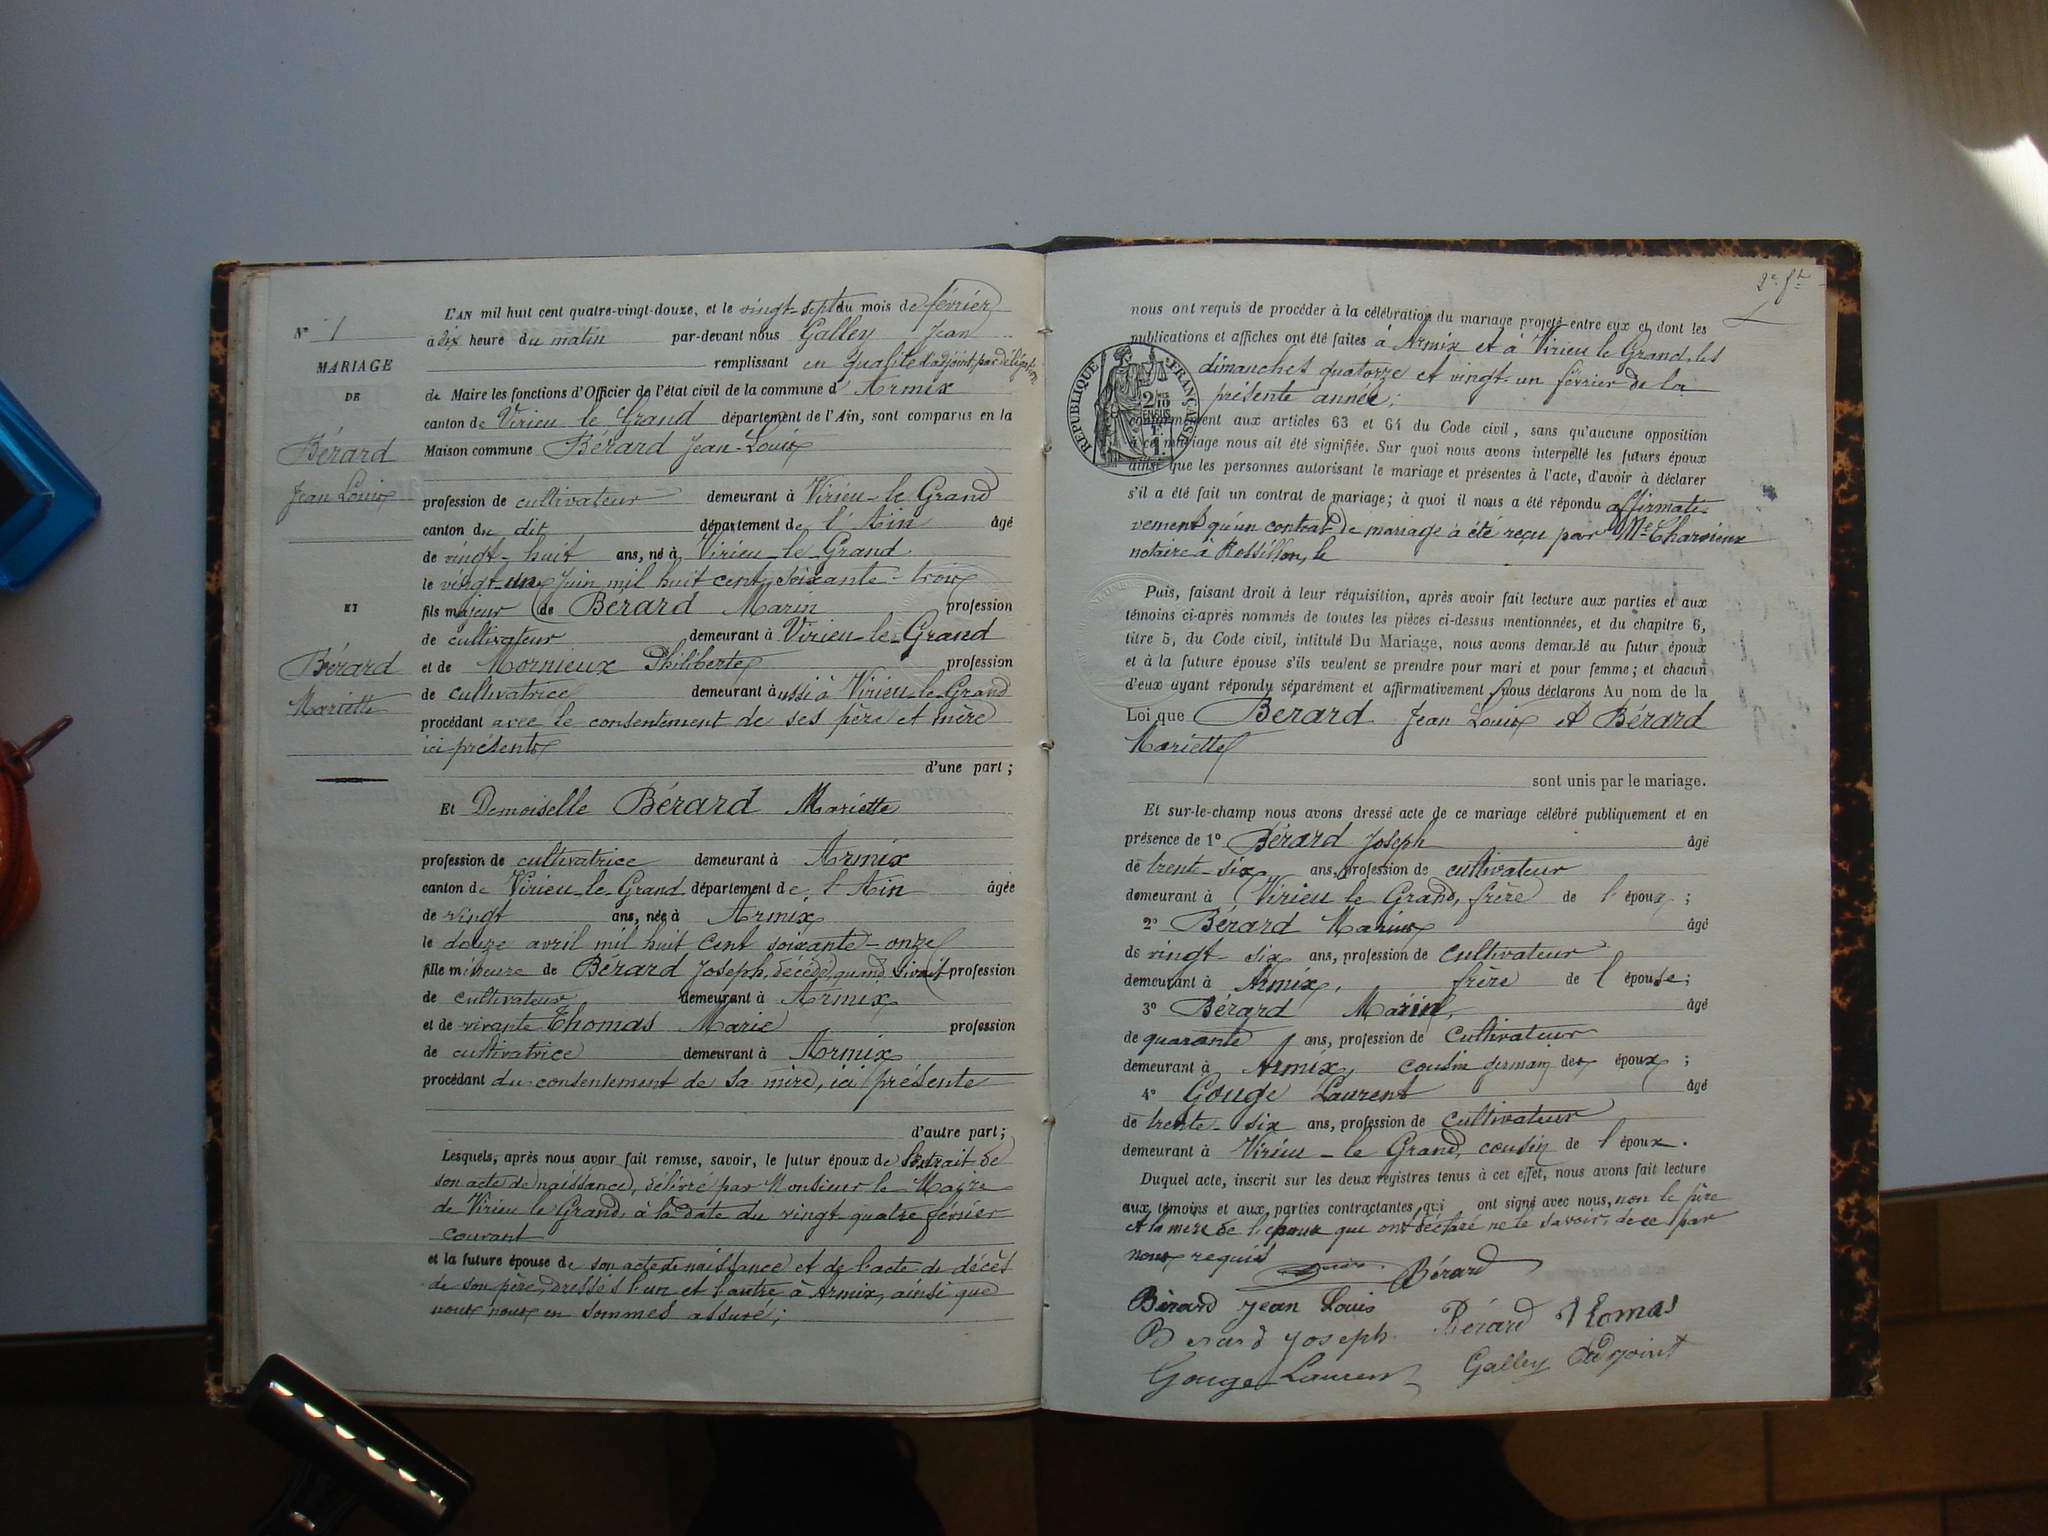 N° 1
MARIAGE
DE
Bérard
Jean Louis
ET
Bérard
Mariette
L'AN mil huit cent quatre-vingt-douze, et le vingt-sept du mois de février
à dix heure du matin par-devant nous Galley Jean
remplissant en qualité d'adjoint, par délégation
de Maire les fonctions d'Officier de l'état civil de la commune d' Armix
canton de Virieu le Grand département de l'Ain, sont comparus en la
Maison commune Bérard Jean-Louis
profession de cultivateur demeurant à Virieu-le Grand
canton du dit département de l'Ain âgé
de vingt-huit ans, né à Virieu-le-Grand
le vingt-un Juin mil huit cent soixante-trois
fils majeur de Bérard Marin profession
de cultivateur demeurant à Virieu-le-Grand
et de Mornieux Philiberte profession
de cultivatrice demeurant aussi à Virieu-le-Grand
procédant avec le consentement de ses père et mère
ici présents
d'une part ;
Et Demoiselle Bérard Mariette
profession de cultivatrice demeurant à Armix
canton de Virieu-le-Grand département de l'Ain âgée
de vingt ans, née à Armix
le douze avril mil huit cent soixante-onze
fille mineure de Bérard Joseph, décédé, quand vivait profession
de cultivateur demeurant à Armix
et de vivante Thomas Marie profession
de cultivatrice demeurant à Armix
procédant du consentement de sa mère, ici présente
d'autre part ;
Lesquels, après nous avoir fait remise, savoir, le futur époux de l'extrait de
son acte de naissance, délivré par Monsieur le Maire
de Virieu le Grand, à la date du vingt quatre février
courant
et la future épouse de son acte de naissance et de l'acte de décès
de son père, dressés l'un et l'autre à Armix, ainsi que
nous nous en sommes assuré ;
2e ft
nous ont requis de procéder à la célébration du mariage projeté entre eux et dont les
publications et affiches ont été faites à Armix et à Virieu le Grand, les
dimanches quatorze et vingt-un février de la
présente année ;
REPUBLIQUE FRANÇAISE
conformément aux articles 63 et 64 du Code civil, sans qu'aucune opposition
à ce mariage nous ait été signifiée. Sur quoi nous avons interpellé les futurs époux
ainsi que les personnes autorisant le mariage et présentes à l'acte, d'avoir à déclarer
s'il a été fait un contrat de mariage ; à quoi il nous a été répondu affirmati-
vement qu'un contrat de mariage a été reçu par Me
notaire à Rossillon, le
Puis, faisant droit à leur réquisition, après avoir fait lecture aux parties et aux
témoins ci-après nommés de toutes les pièces ci-dessus mentionnées, et du chapitre 6,
titre 5, du Code civil, intitulé Du Mariage, nous avons demandé au futur époux
et à la future épouse s'ils veulent se prendre pour mari et pour femme ; et chacun
d'eux ayant répondu séparément et affirmativement, nous déclarons Au nom de la
Loi que Bérard Jean Louis et Bérard
Mariette
sont unis par le mariage.
Et sur-le-champ nous avons dressé acte de ce mariage célébré publiquement et en
présence de 1° Bérard Joseph âgé
de trente-six ans, profession de cultivateur
demeurant à Virieu le Grand, frère de l'époux ;
2° Bérard Marius âgé
de vingt-six ans, profession de cultivateur
demeurant à Armix, frère de l'épouse ;
3° Bérard Marin, âgé
de quarante ans, profession de cultivateur
demeurant à Armix, cousin germain des époux ;
4° Gouge Laurent âgé
de trente-six ans, profession de cultivateur
demeurant à Virieu-le Grand, cousin de l'époux.
Duquel acte, inscrit sur les deux registres tenus à cet effet, nous avons fait lecture
aux témoins et aux parties contractantes qui ont signé avec nous, non le père
et la mère de l'époux que ont déclaré ne le savoir, de ce par
nous requis
Bérard
Bérard Jean Louis Bérard Thomas
Berard Joseph
Gouge Laurent Galley Adjoint